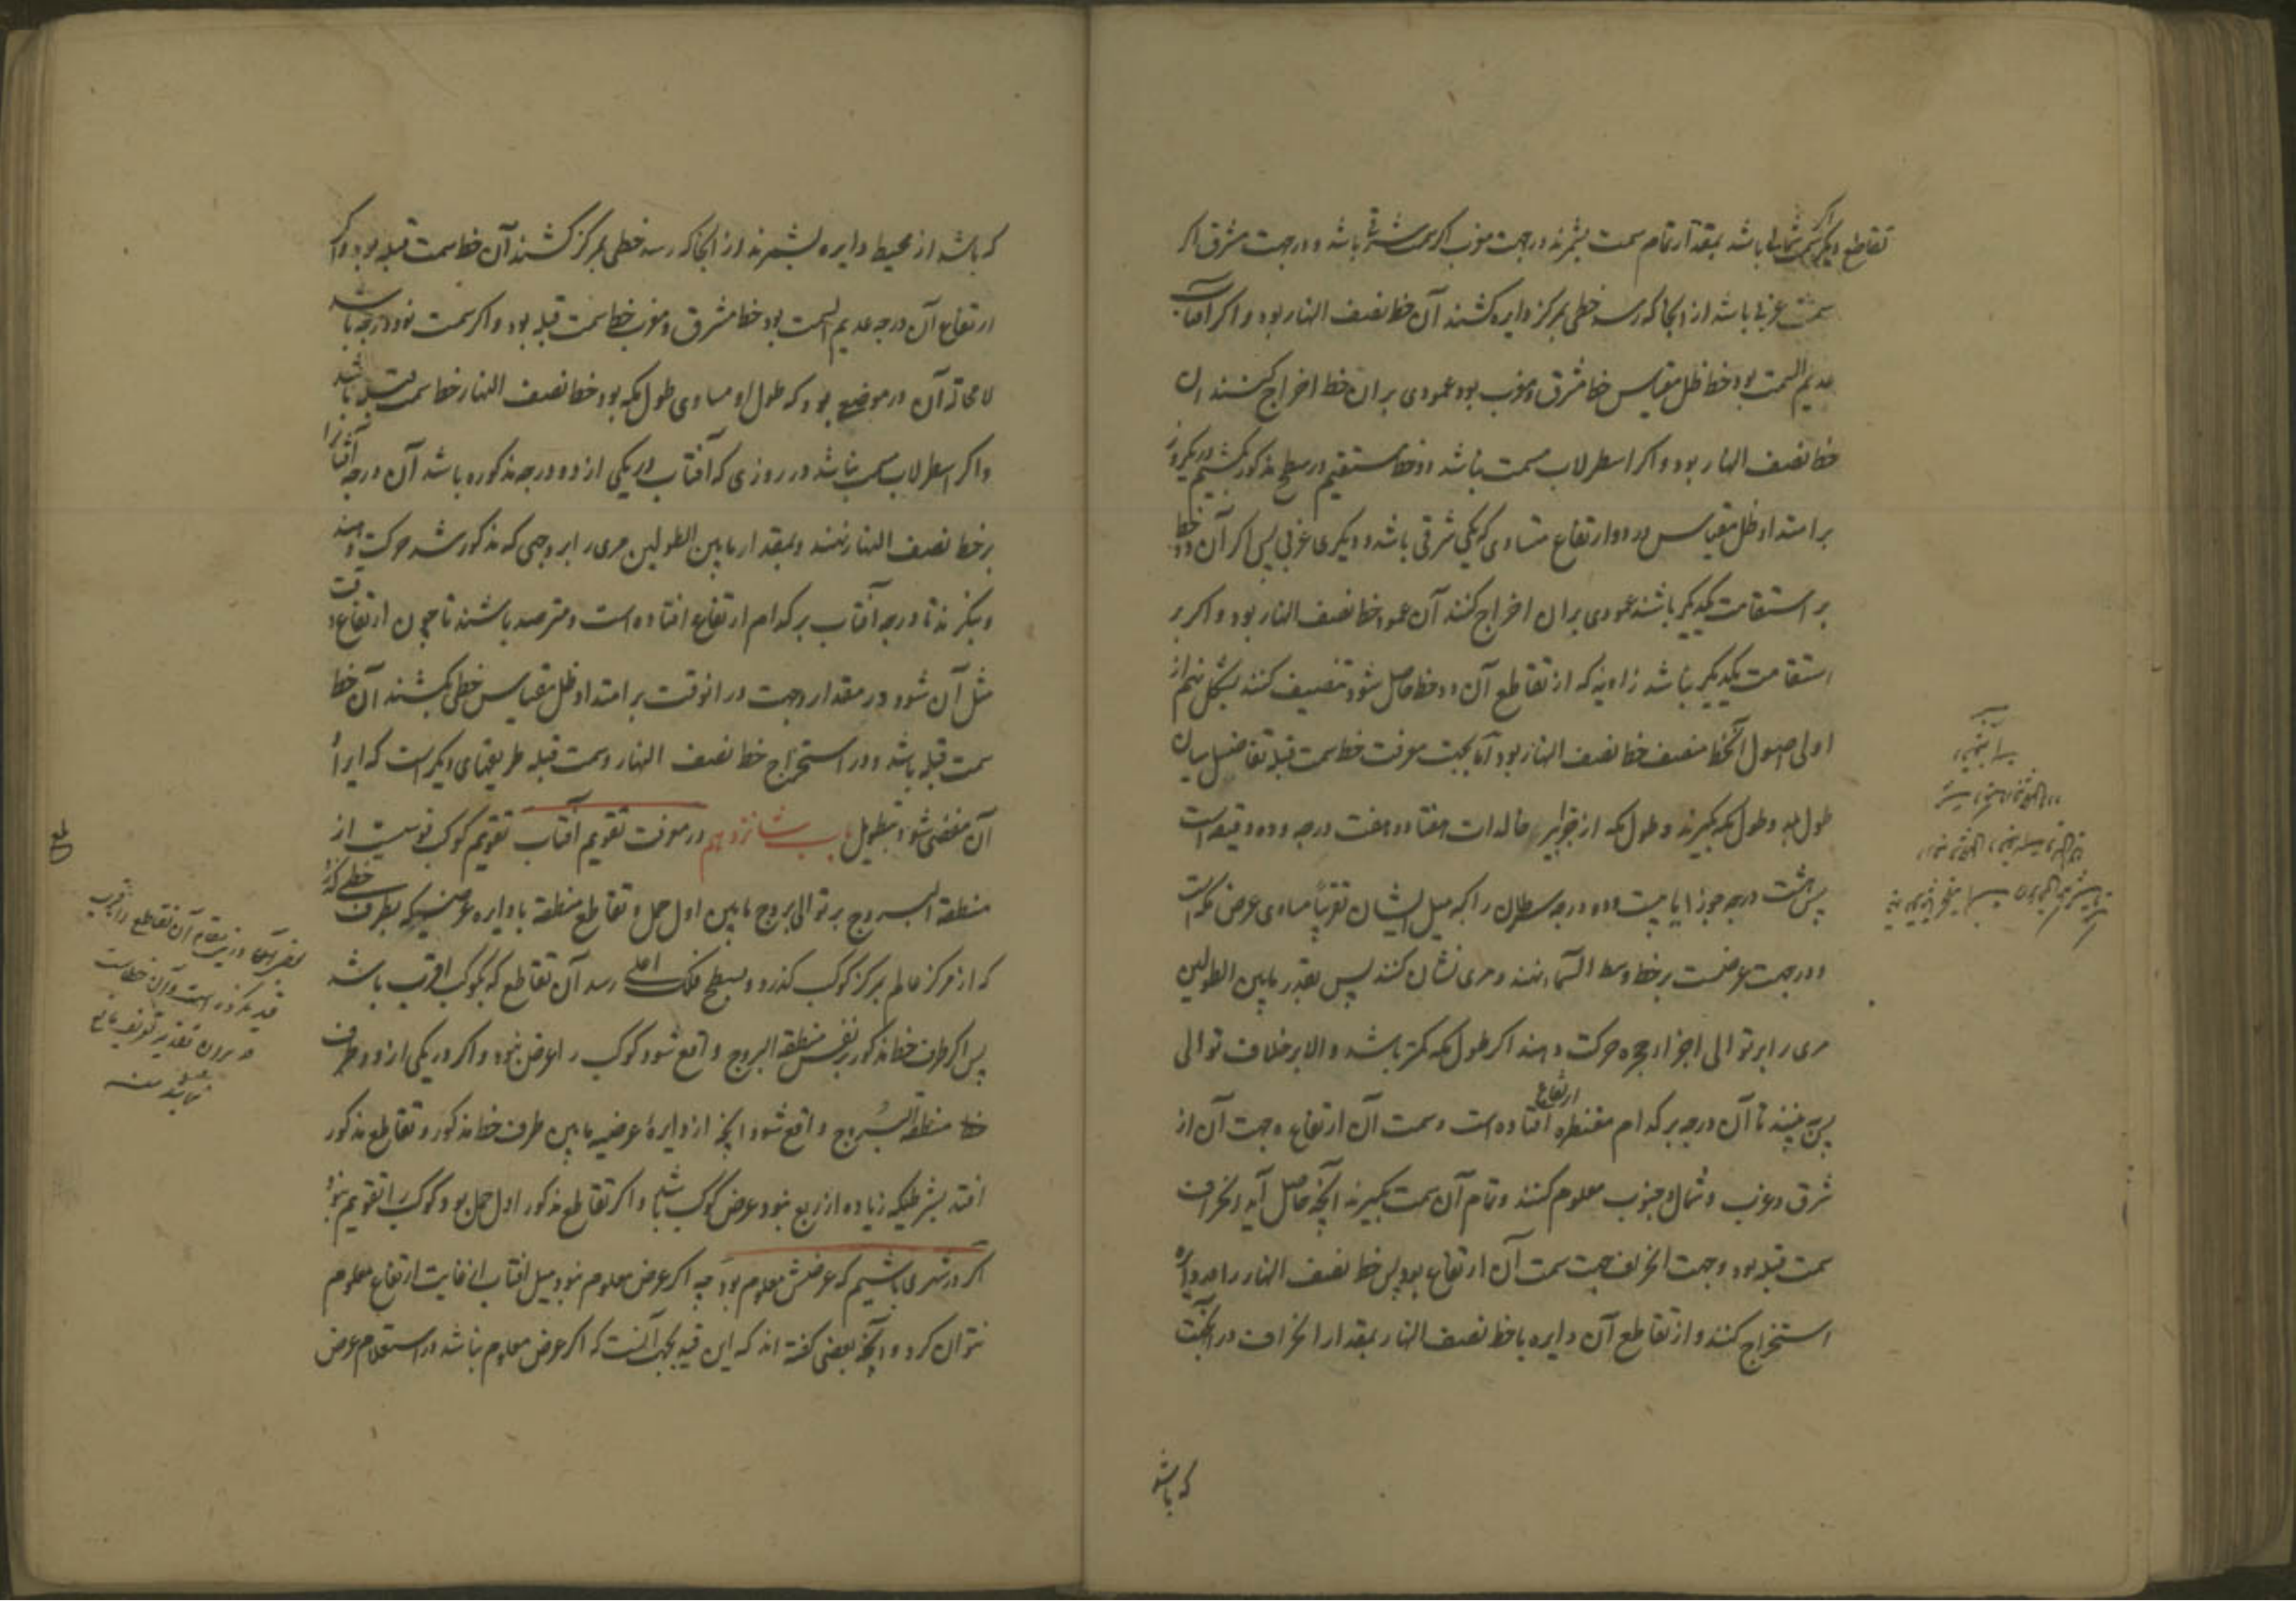 تقاطع دیکر اکر سمت شمالی باشد بمقدار تمام سمت بشمرند در جهت مغرب اکر سمت شرقی باشد و در جهت مشرق اکر
سمت غربی باشد از انجا که رسد خطی بمرکز دایره کشند آن خط نصف النهار بود و اکر آفتاب
عدیم السمت بود خط ظل مقیاس خط مشرق و مغرب بود عمودی بر ان خط اخراج کنند ان
خط نصف النهار بود و اکر اسطرلاب مسمت نباشد دو خط مستقیم در سطح مذکور کشیم در یکروز
بر امتداد ظل مقیاس در دو ارتفاع متساوی که یکی شرقی باشد و دیکری غربی پس اکر آن دو خط
بر استقامت یکدیکر باشند عمودی بر ان اخراج کنند آن عمود خط نصف النهار بود و اکر بر
استقامت یکدیکر نباشد زاویه که از تقاطع آن دو خط حاصل شود تنصیف کنند بشکل نهم از
اولی اصول آن خط منصف خط نصف النهار بود اما بجهت معرفت خط سمت قبله تفاضل میان
طول بلد و طول مکه بکیرند و طول مکه از جزایر خالدات هفتاد و هفت درجه و ده دقیقه است
پس هشت درجه جوزا یا بیست و دو درجه سرطان را که میل ایشان تقریبا مساوی عرض مکه است
و در جهت عرضست بر خط وسط السماء نهند و مری نشان کنند پس بقدر مابین الطولین
مری را بر توالی اجزاء حجره حرکت دهند اکر طول مکه کمتر باشد و الا بر خلاف توالی
پس ببینند تا آن درجه بر کدام مقنطره ارتفاع افتاده است و سمت آن ارتفاع و جهت آن از
شرق و غرب و شمال و جنوب معلوم کنند و تمام آن سمت بکیرند آنچه حاصل آید انحراف
سمت قبله بود و جهت انحراف جهت سمت آن ارتفاع بود پس خط نصف النهار را در دایره
استخراج کنند و از تقاطع آن دایره با خط نصف النهار بمقدار انحراف در آن جهت
که باشد
که باشد از محیط دایره بشمرند از انجا که رسد خطی بمرکز کشند آن خط سمت قبله بود و اکر
ارتفاع آن درجه عدیم السمت بود خط مشرق و مغرب خط سمت قبله بود و اکر سمت نود درجه باشد
لا محاله آن در موضعی بود که طول او مساوی طول مکه بود خط نصف النهار خط سمت قبله باشد
و اکر اسطرلاب مسمت نباشد در روزی که آفتاب در یکی از دو درجه مذکوره باشد آن درجه آفتاب را
بر خط نصف النهار نهند و بمقدار مابین الطولین مری را بر وجهی که مذکور شد حرکت دهند
و بنکرند تا درجه آفتاب بر کدام ارتفاع افتاده است و مترصد باشند تا چون ارتفاع وقت
مثل آن شود در مقدار و جهت در انوقت بر امتداد ظل مقیاس خطی بکشند آن خط
سمت قبله باشد و در استخراج خط نصف النهار و سمت قبله طریقهای دیکر است که ایراد
آن مفضی شود بتطویل باب شانزدهم در معرفت تقویم آفتاب تقویم کوکب قوسیست از
منطقة البروج بر توالی بروج مابین اول حمل و تقاطع منطقه با دایره عرضیه که بطرف خطی کذرد
که از مرکز عالم بمرکز کوکب کذرد و بسطح فلک اعلی رسد آن تقاطع که بکوکب اقرب باشد
پس اکر طرف خط مذکور بر نفس منطقة البروج واقع شود کوکب را عرض نبود و اکر در یکی از دو طرف
خط منطقة البروج واقع شود آنچه از دایرهٔ عرضیه مابین طرف خط مذکور و تقاطع مذکور
افتد بشرطیکه زیاده از ربع نبود عرض کوکب باشد و اکر تقاطع مذکور اول حمل بود کوکب را تقویم نبود
اکر در شهری باشیم که عرضش معلوم بود چه اکر عرض معلوم نبود میل آفتاب از غایت ارتفاع معلوم
نتوان کرد و آنچه بعضی کفته اند که این قید بجهت آنست که اکر عرض معلوم نباشد در استعلام عرض